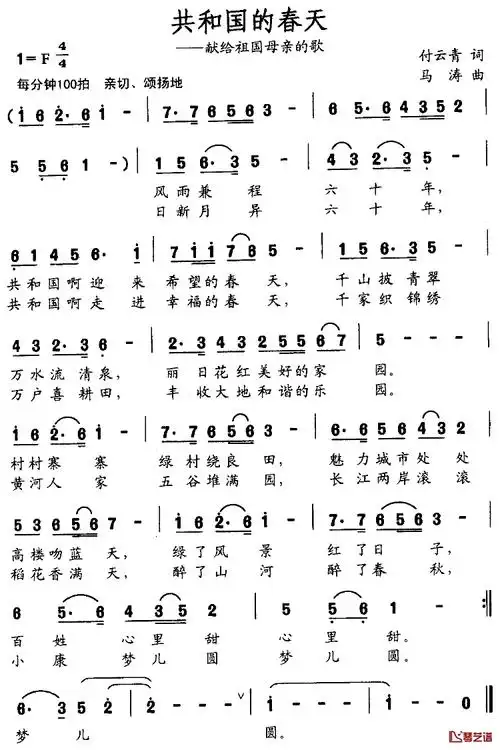 共和国的春天
——献给祖国母亲的歌
1=F 4/4
付云青 词
每分钟100拍 亲切、颂扬地
马涛 曲
(1 6 2· 1 - | 7· 7 6 5 6 3 - | 2· 3 5 6 7 6 5
5 5 6 1 - ) | 1 5 6· 3 5 | 4 3 2· 3 5 -
风雨兼程 六十年,
日新月异 六十年,
6 1 4 5 6· 1 | 7 1 1 7 6 5 - | 1 1 5· 6 4 5
共和国啊迎来 希望的春天, 千山披青翠
共和国啊走进 幸福的春天, 千家织锦绣
4 3 2· 3 6 - | 2· 3 4 3 2 5 5 6 7 | 5 - - -
万水流清泉, 丽日花红美好的家 园。
万户喜耕田, 丰收大地和谐的乐 园。
1 6 2· 1 - | 7· 7 6 5 6 3 - | 6· 6 5 6 4 3 2
村村寨寨 绿村绕良田, 魅力城市处处
黄河人家 五谷堆满园, 长江两岸滚滚
5 3 6 5 6 5 - | 1 6 2· 1 - | 7· 7 6 5 6 3 -
高楼吻蓝天, 绿了风景 红了日子,
稻花香满天, 醉了山河 醉了春秋,
6 5· 6 4 3 5 | 2 - - - | 5 5· 6 1 - :||
百姓心里甜 心里甜。
小康梦儿圆 梦儿圆。
6· 3 5 2· | 2 - - - | 1 - - - | 1 - - 0 ||
梦儿 圆。
琴艺谱